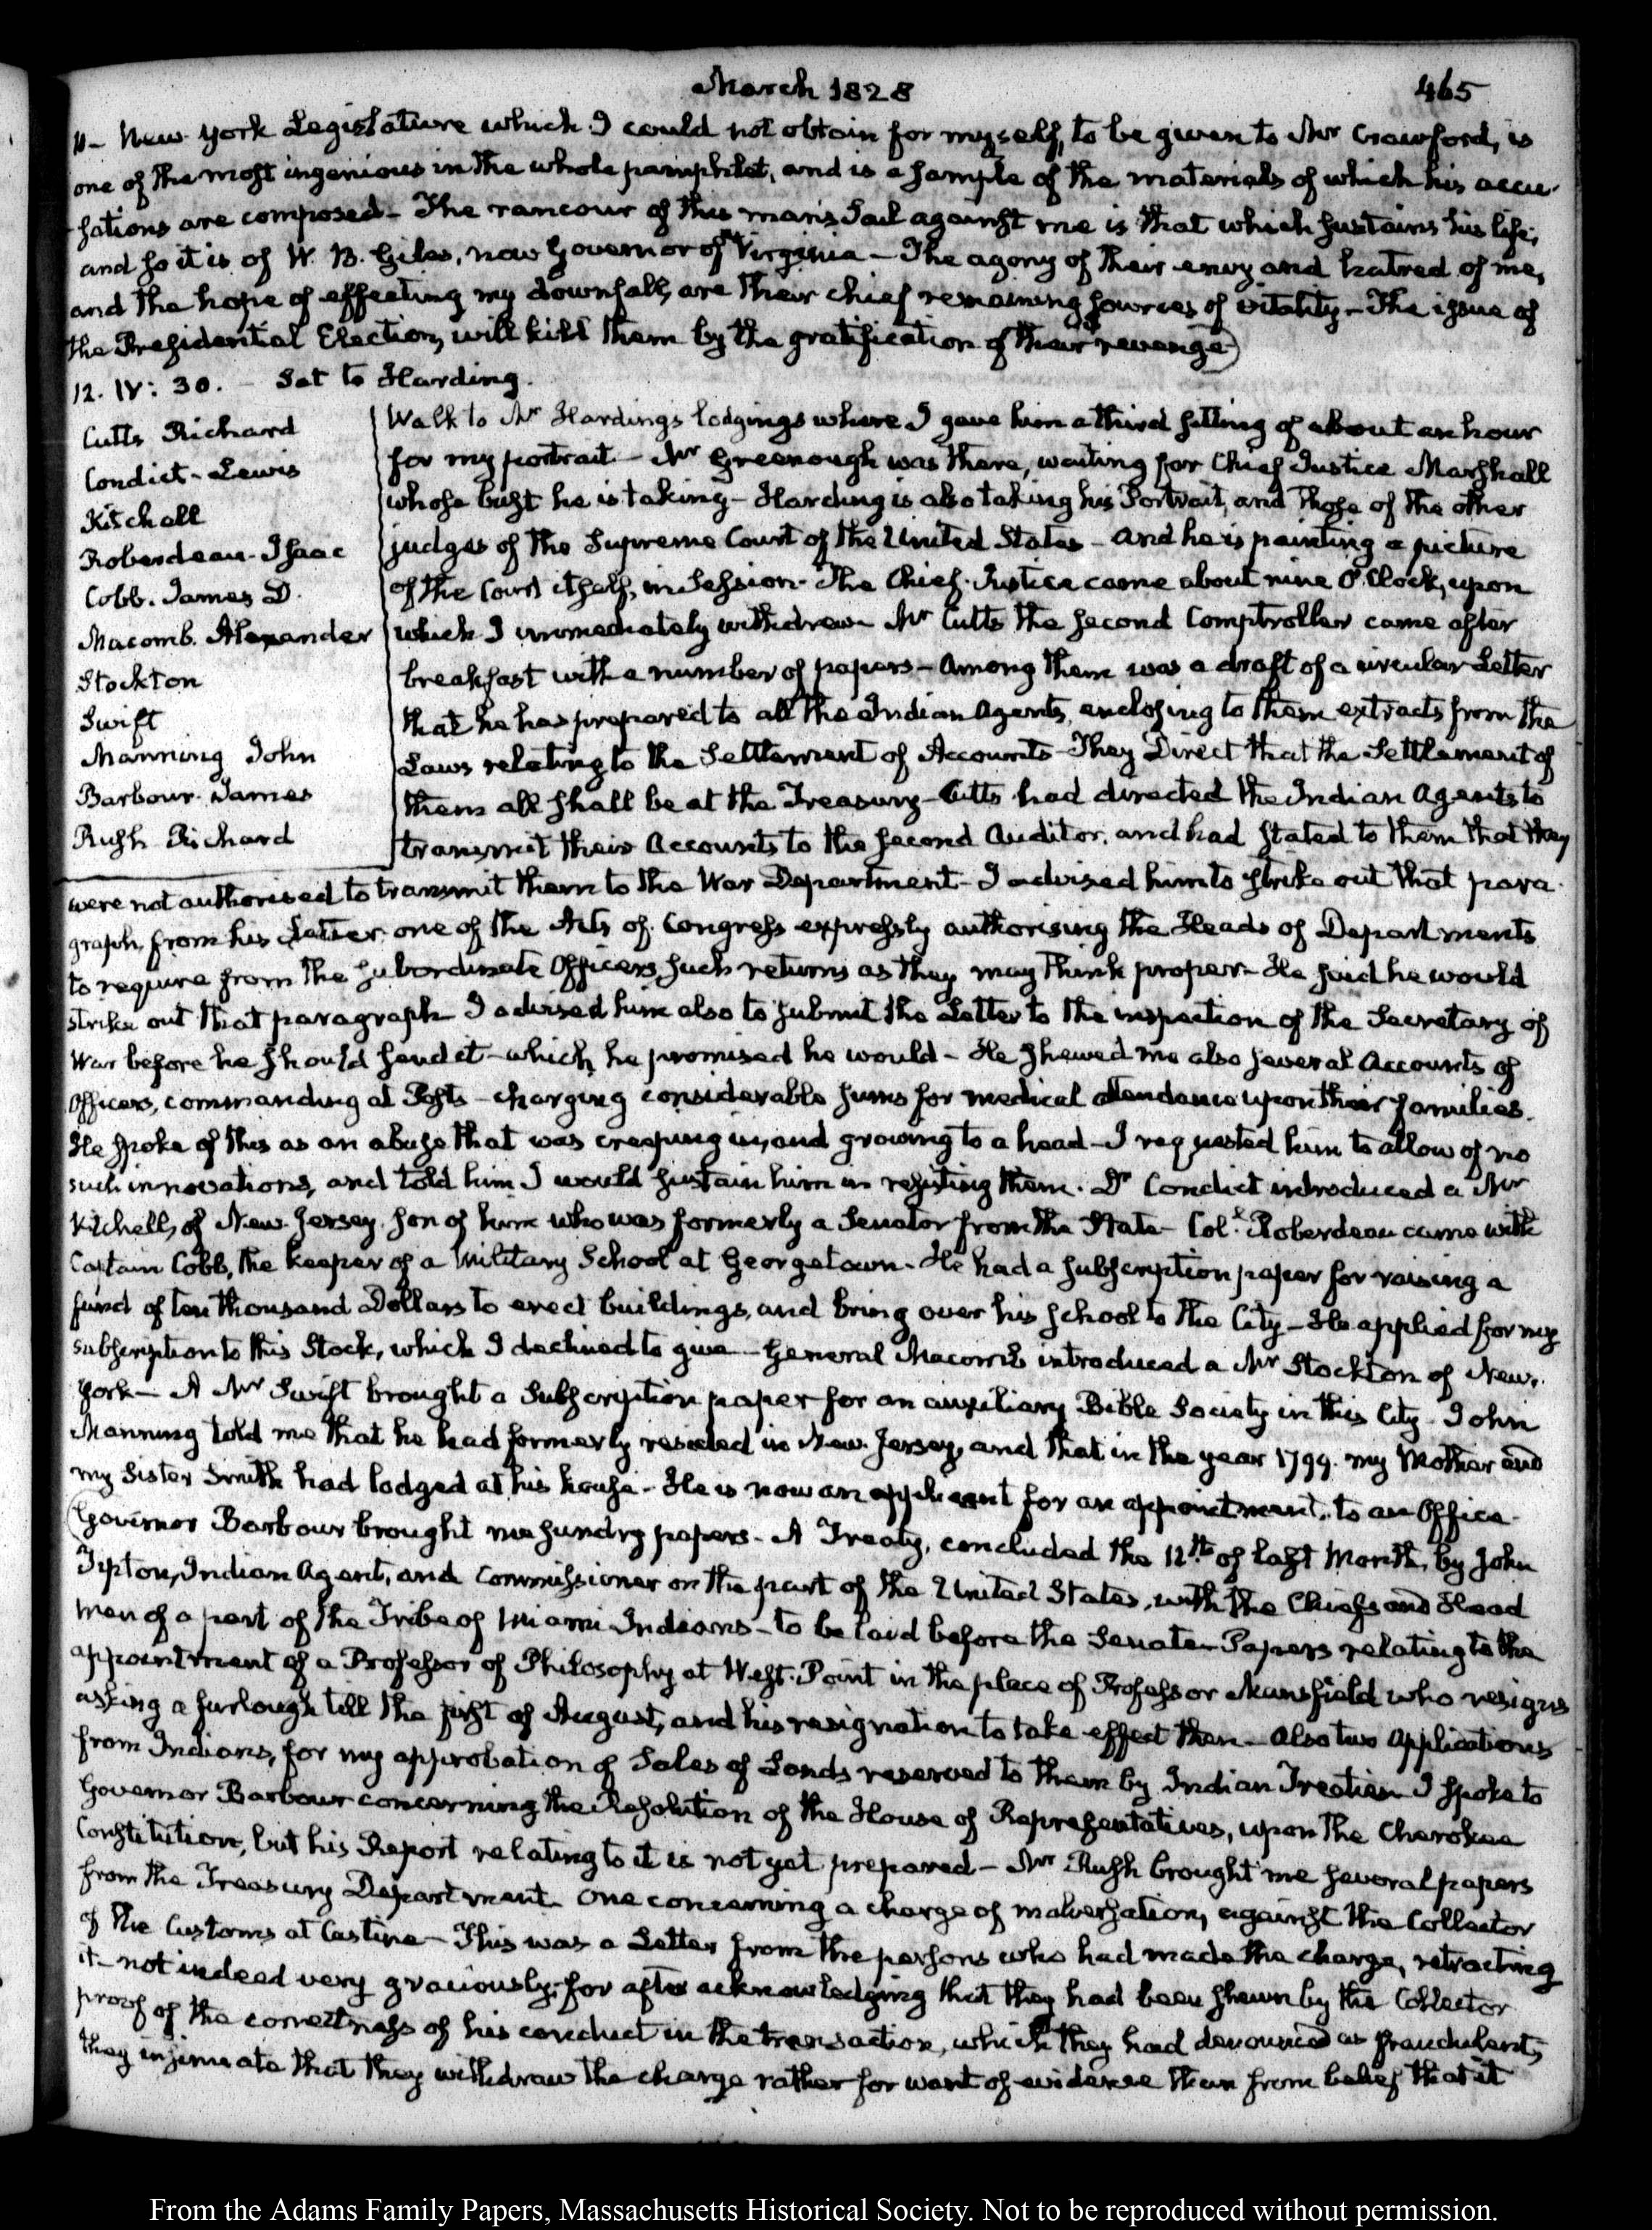 March 1828
465
11- New York Legislature which I could not obtain for myself, to be given to Mr Crawford, is
one of the most ingenious in the whole pamphlet, and is a sample of the materials of which his accu-
sations are composed- The rancour of this man's Soul against me is that which sustains his life;
and so it is of W. B. Giles, now Governor of Virginia- The agony of their envy and hatred of me,
and the hope of effecting my downfall, are their chief remaining sources of vitality- The issue of
the Presidential Election, will kill them by the gratification of their revenge)
12. IV: 30. - Sat to Harding.
Cutts Richard
Condict- Lewis
Kitchell
Roberdeau- Isaac
Cobb. James D.
Macomb. Alexander
Stockton
Swift
Manning John
Barbour. James
Rush Richard
Walk to Mr Hardings lodgings where I gave him a third sitting of about an hour
for my portrait- Mr Greenough was there, waiting for Chief Justice Marshall
whose bust he is taking- Harding is also taking his Portrait, and those of the other
judges of the Supreme Court of the United States- and he is painting a picture
of the Court itself, in Session- The Chief-Justice came about nine O'Clock, upon
which I immediately withdrew- Mr Cutts the second Comptroller came after
breakfast with a number of papers- Among them was a draft of a circular Letter
that he has prepared to all the Indian Agents, enclosing to them extracts from the
Laws relating to the Settlement of Accounts- They Direct that the Settlement of
them all shall be at the Treasury- Cutts had directed the Indian Agents to
transmit their Accounts to the second Auditor, and had stated to them that they
were not authorised to transmit them to the War Department- I advised him to strike out that para-
graph, from his Letter, one of the Acts of Congress expressly authorising the Heads of Departments
to require from the subordinate Officers, such returns as they may think proper- He said he would
strike out that paragraph- I advised him also to submit the Letter to the inspection of the Secretary of
War before he should send it- which he promised he would- He shewed me also several Accounts of
Officers, commanding at Posts- charging considerable sums for medical attendance upon their families.
He spoke of this as an abuse that was creeping in, and growing to a head- I requested him to allow of no
such innovations, and told him I would sustain him in resisting them. Dr Condict introduced a Mr
Kitchell, of New-Jersey. son of him who was formerly a Senator from the State- Coll. Roberdeau came with
Captain Cobb, the keeper of a Military School at Georgetown- He had a subscription paper for raising a
fund of ten thousand Dollars to erect buildings, and bring over his school to the City- He applied for my
subscription to this Stock, which I declined to give- General Macomb introduced a Mr Stockton of New-
York- A Mr Swift brought a Subscription paper for an auxiliary Bible Society in this City- John
Manning told me that he had formerly resided in New-Jersey, and that in the year 1799. my Mother and
my Sister Smith had lodged at his house- He is now an applicant for an appointment, to an Office-
(Governor Barbour brought me sundry papers- A Treaty, concluded the 12th of last Month, by John
Tipton, Indian Agent, and Commissioner on the part of the United States, with the Chiefs and Head
men of a part of the Tribe of Miami Indians- to be laid before the Senate- Papers relating to the
appointment of a Professor of Philosophy at West-Point in the place of Professor Mansfield who resigns
asking a furlough till the first of August, and his resignation to take effect then- Also two Applications
from Indians, for my approbation of Sales of Lands reserved to them by Indian Treaties- I spoke to
Governor Barbour concerning the Resolution of the House of Representatives, upon the Cherokee
Constitution, but his Report relating to it is not yet prepared- Mr Rush brought me several papers
from the Treasury Department- One concerning a charge of malversation, against the Collector
of the Customs at Castine- This was a Letter from the persons who had made the charge, retracting
it- not indeed very graciously; for after acknowledging that they had been shewn by the Collector
proof of the correctness of his conduct in the transaction, which they had denounced as fraudulent,
they insinuate that they withdraw the charge rather for want of evidence than from belief that it
From the Adams Family Papers, Massachusetts Historical Society. Not to be reproduced without permission.